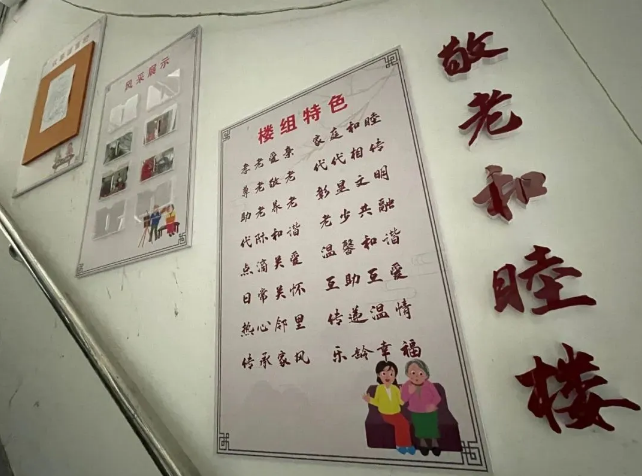 风采展示
楼组特色
孝老爱亲 家庭和睦
尊老敬老 代代相传
助老养老 彰显文明
代际和谐 老少共融
点滴关爱 温馨和谐
日常关怀 互助互爱
热心邻里 传递温情
传承家风 乐龄幸福
敬老和睦楼